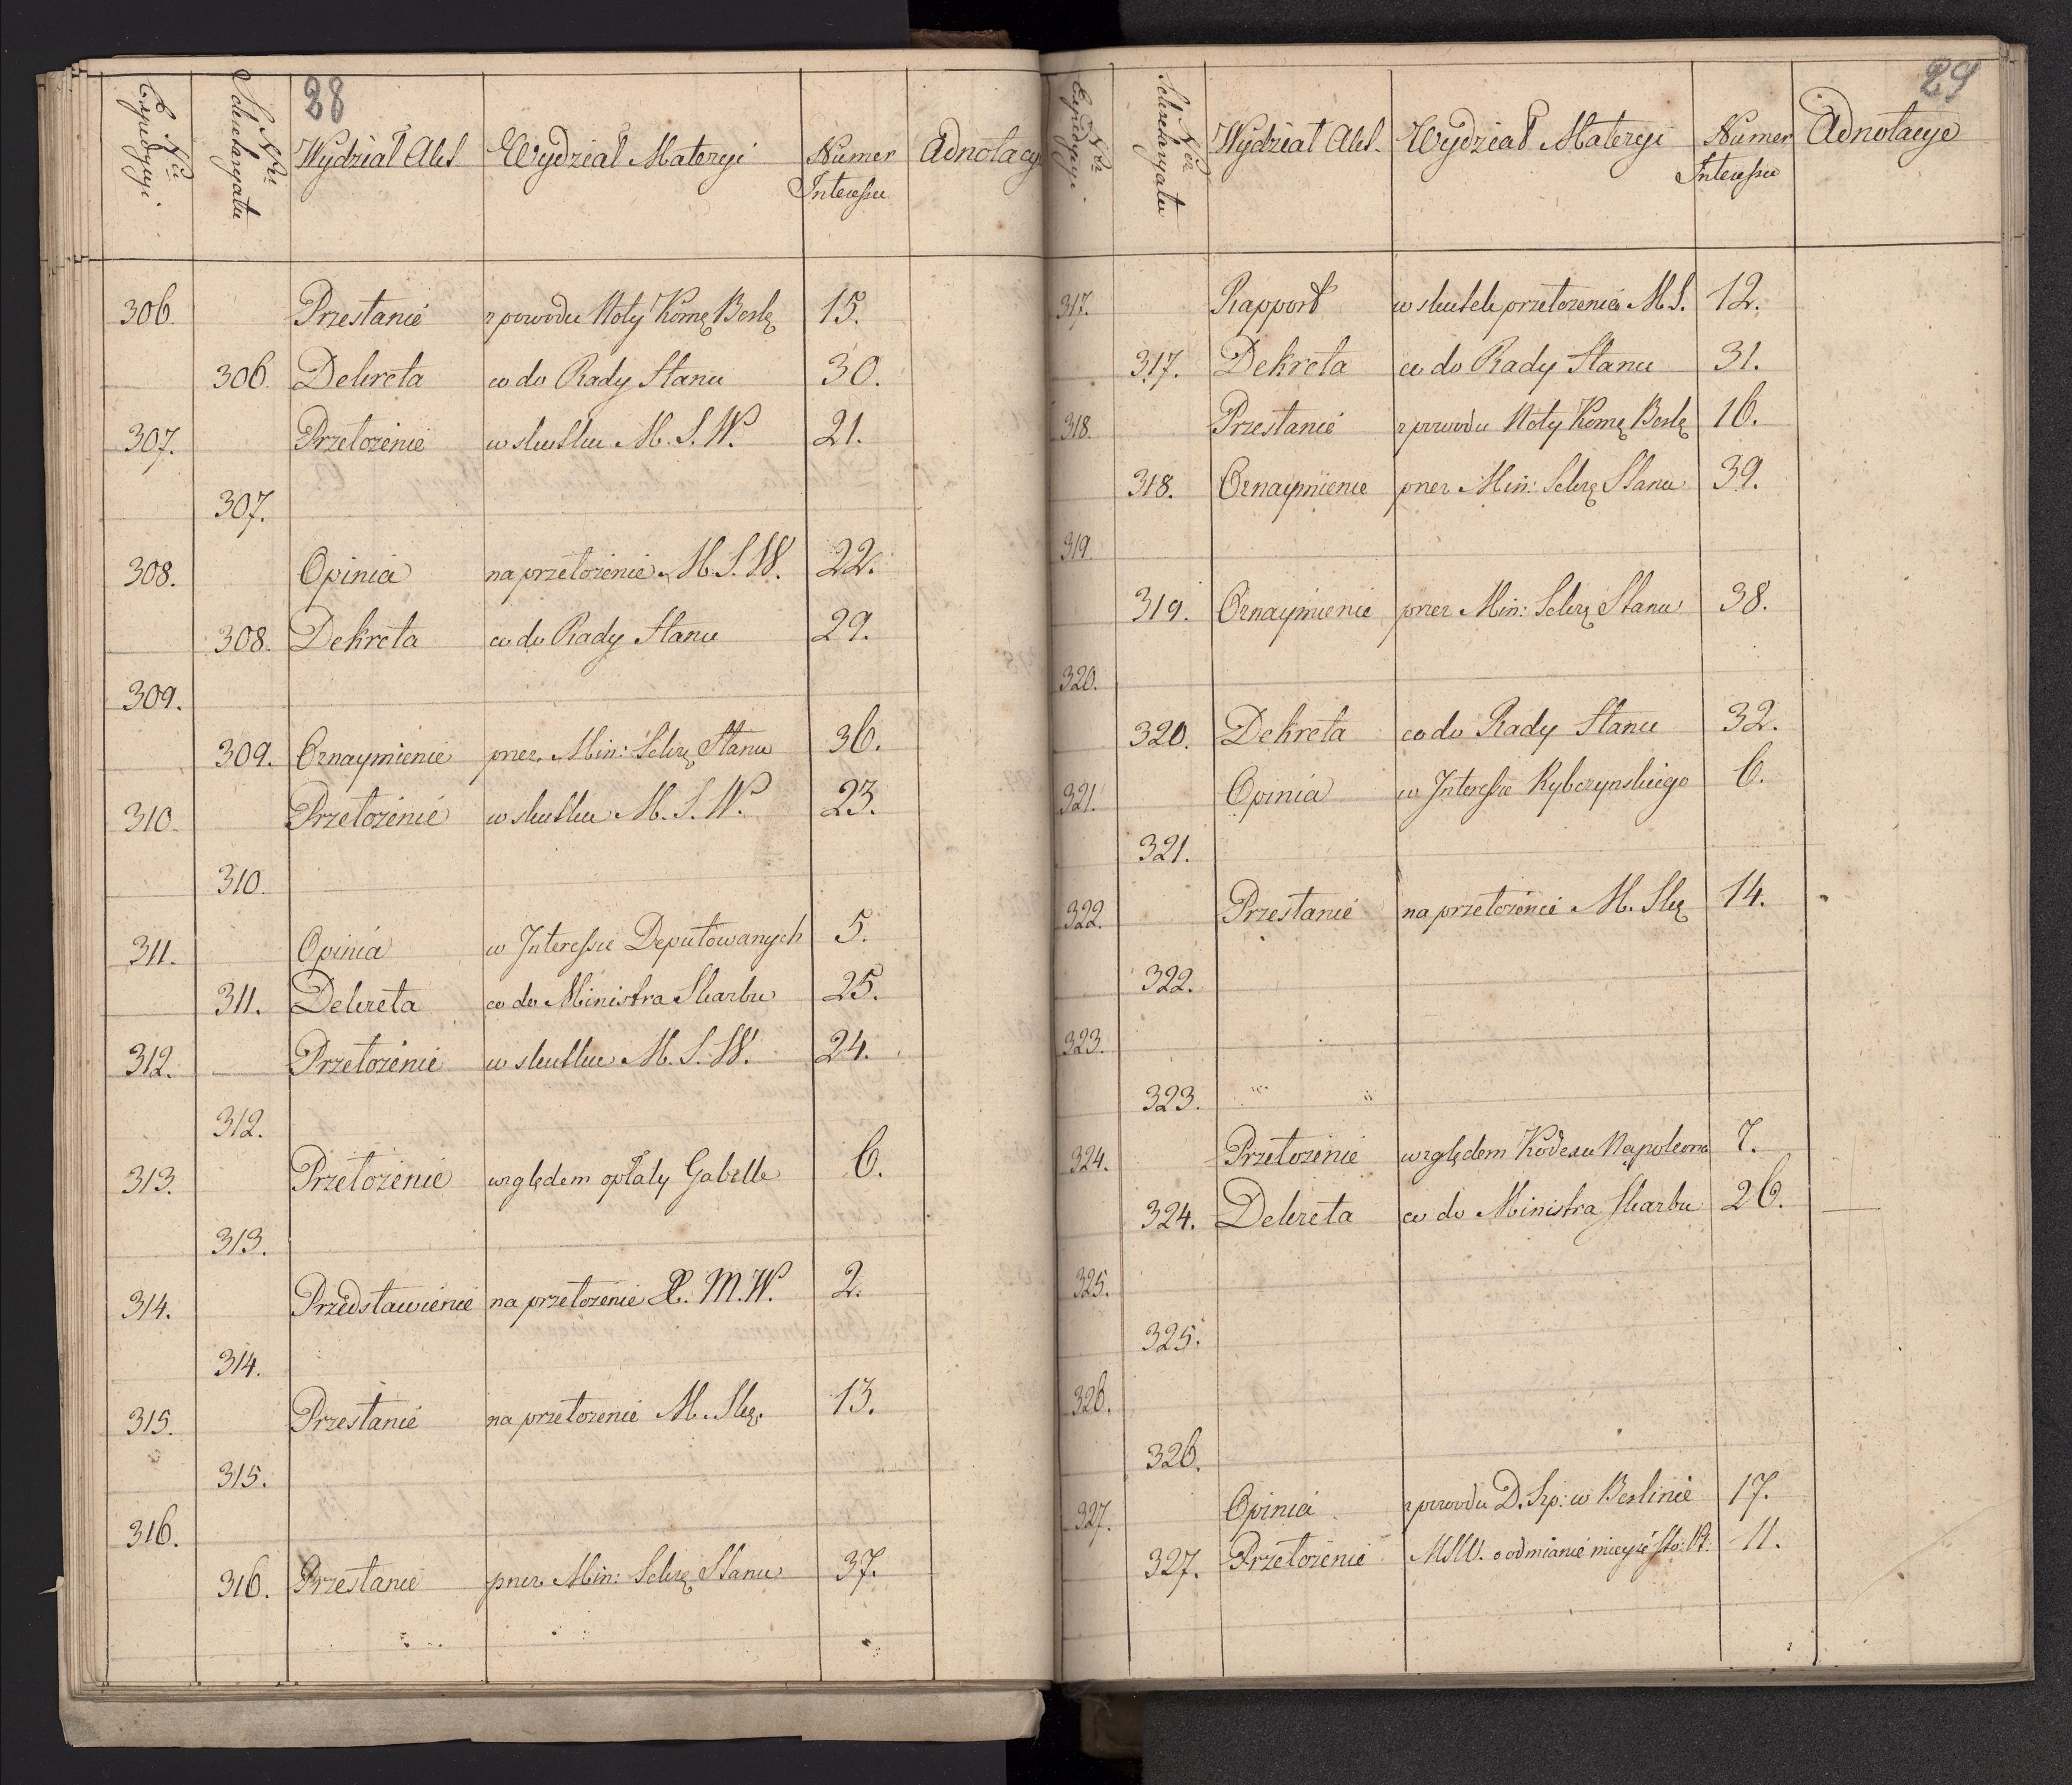 28
Nru Expedycyi.
Nru Sekretaryatu
Wydział Akt.
Wydział Materyi
Numer Interessu
Adnotacye
306. Przesłanie z powodu Noty Komę Berlę 15.
306. Dekreta co do Rady Stanu 30.
307. Przełożenie w skutku M. S. W. 21.
307.
308. Opinia na przełożenie M. S. W. 22.
308. Dekreta co do Rady Stanu 29.
309.
309. Oznaymienie przez Min: Sekrę Stanu 36.
310. Przełożenie w skutku M. S. W. 23.
310.
311. Opinia w Interessie Deputowanych 5.
311. Dekreta co do Ministra Skarbu 25.
312. Przełożenie w skutku M. S. W. 24.
312.
313. Przełożenie względem opłaty Gabelle 6.
313.
314. Przedstawienie na przełożenie X. M. W. 2.
314.
315. Przesłanie na przełożenie M. Skę. 13.
315.
316.
316. Przesłanie przez Min: Sekrę Stanu 37.
29
Nru Expedycyi.
Nru Sekretaryatu
Wydział Akt.
Wydział Materyi
Numer Interessu
Adnotacye
317. Rapport w skutek przełożenia M. S. 12.
317. Dekreta co do Rady Stanu 31.
318. Przesłanie z powodu Noty Komę Berlę 16.
318. Oznaymienie przez Min: Sekrę Stanu 39.
319.
319. Oznaymienie przez Min: Sekrę Stanu 38.
320.
320. Dekreta co do Rady Stanu 32.
321. Opinia w Interessie Rybczynskiego 6.
321.
322. Przesłanie na przełożenie M. Skę 14.
322.
323.
323.
324. Przełożenie względem Kodexu Napoleona 7.
324. Dekreta co do Ministra Skarbu 26.
325.
325.
326.
326.
327. Opinia z powodu D. Szp: w Berlinie 17.
327. Przełożenie MSW. o odmianie 11.